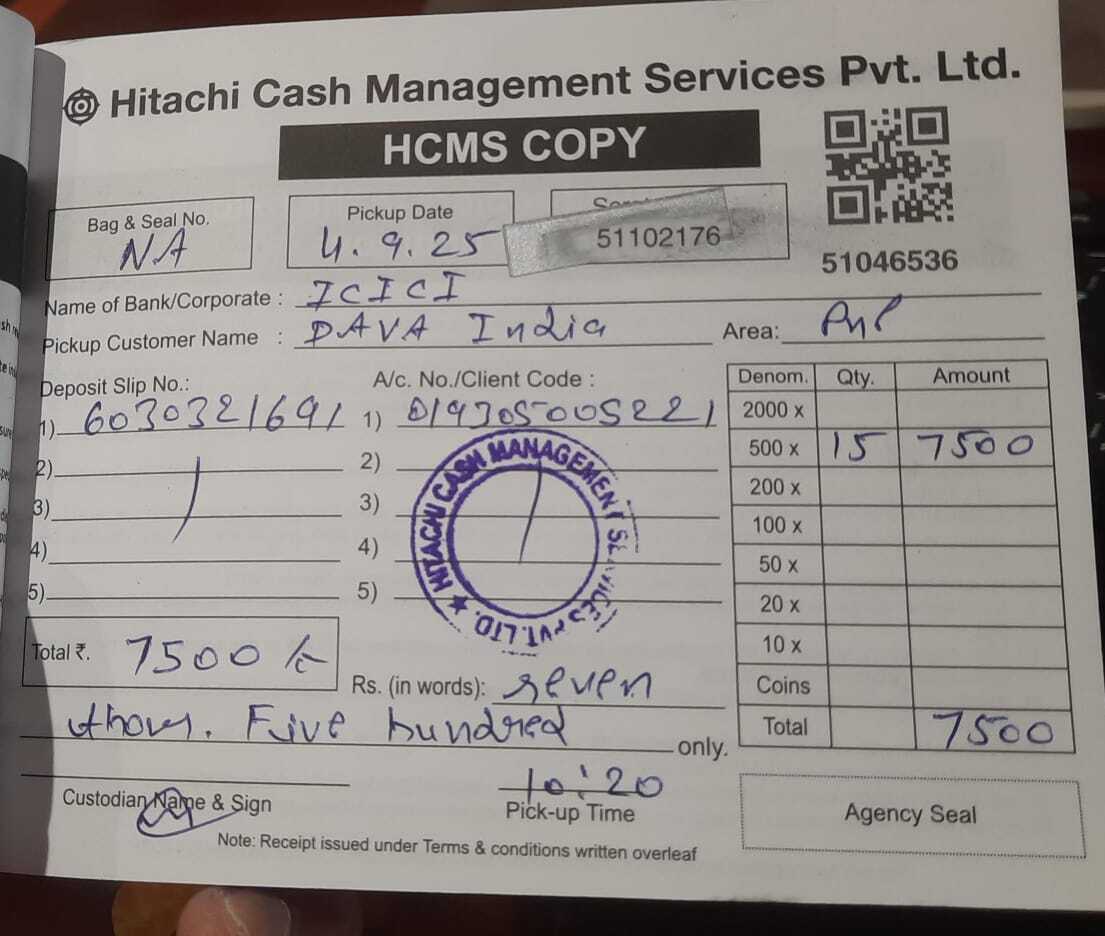 Hitachi Cash Management Services Pvt. Ltd.
HCMS COPY
Bag & Seal No.
NA
Pickup Date
4.9.25
51102176
51046536
Name of Bank/Corporate : ICICI
Pickup Customer Name : DAVA India
Area:
Deposit Slip No.:
1) 6030321691
2)
3)
4)
5)
A/c. No./Client Code :
1) 019305005221
2)
3)
4)
5)
HITACHI CASH MANAGEMENT SERVICES PVT. LTD. ★
Denom. Qty. Amount
2000 x
500 x 15 7500
200 x
100 x
50 x
20 x
10 x
Coins
Total 7500
Total ₹. 7500/-
Rs. (in words): seven
thous. Five hundred only.
Custodian Name & Sign
10:20
Pick-up Time
Agency Seal
Note: Receipt issued under Terms & conditions written overleaf